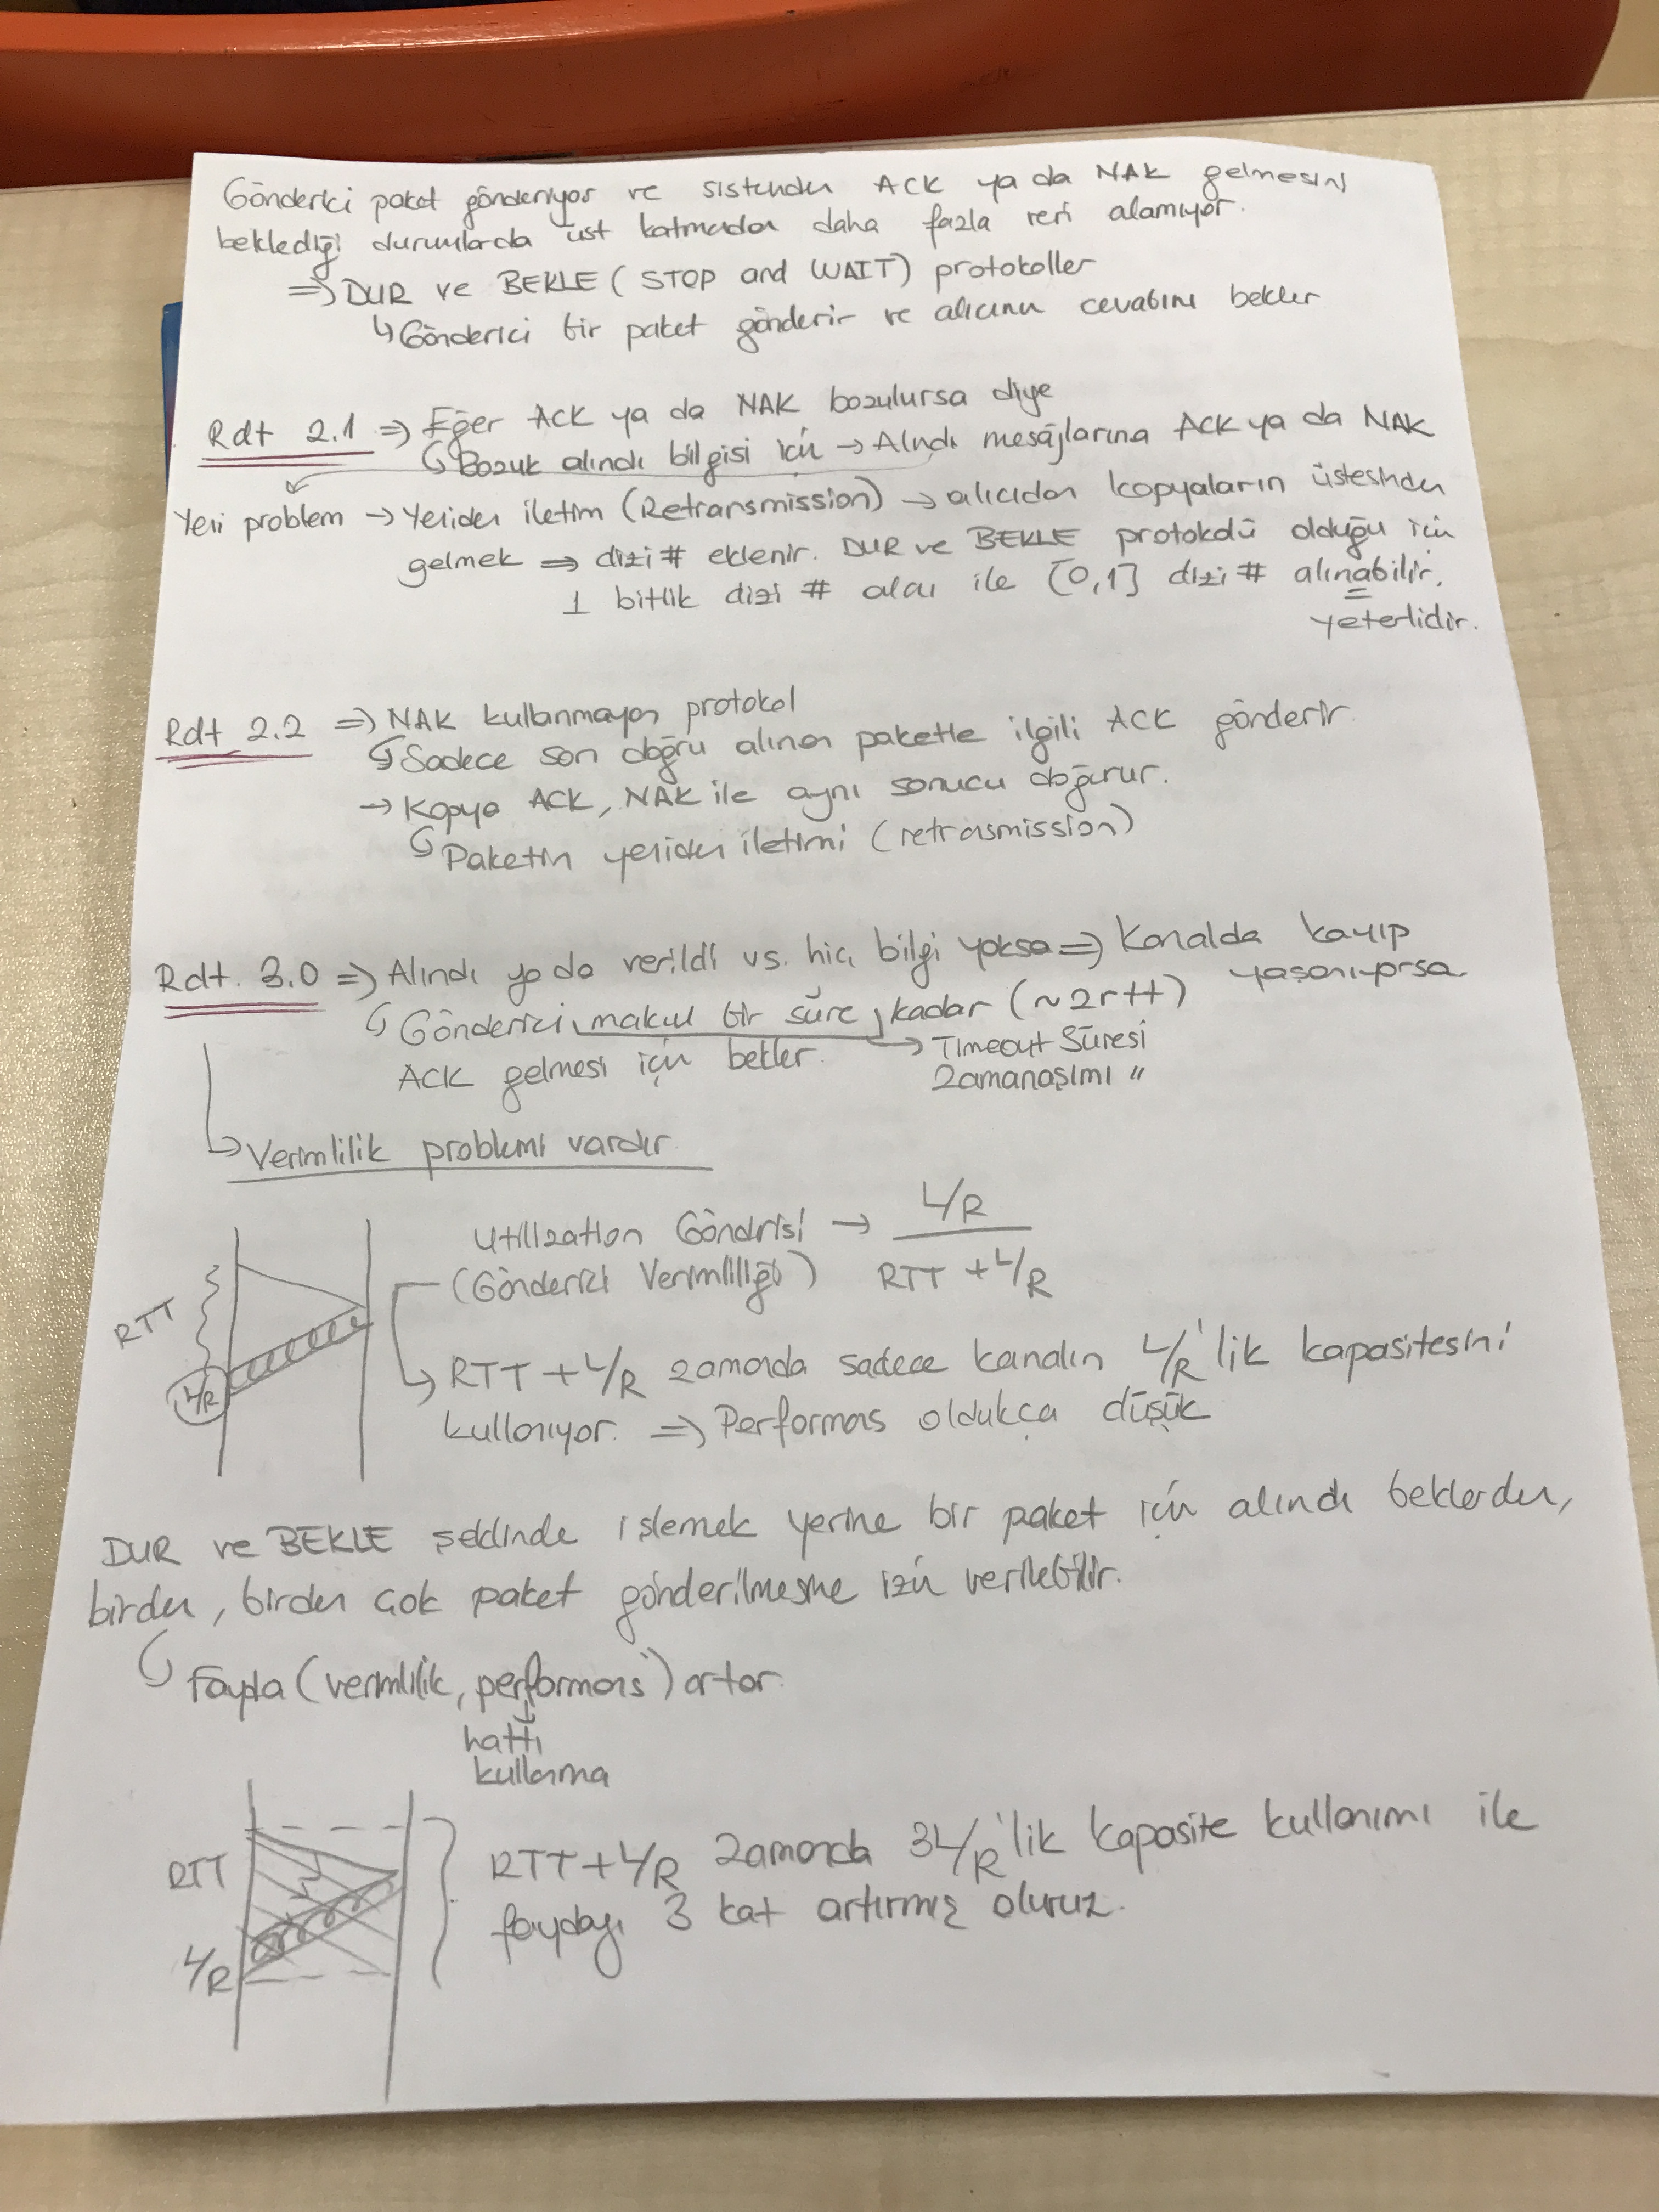 Gönderici paket gönderiyor ve sistemden ACK ya da NAK gelmesini
beklediği durumlarda üst katmandan daha fazla veri alamıyor.
=> DUR ve BEKLE (STOP and WAIT) protokoller
↳ Gönderici bir paket gönderir ve alıcının cevabını bekler
Rdt 2.1 => Eğer ACK ya da NAK bozulursa diye
↳ Bozuk alındı bilgisi için → Alındı mesajlarına ACK ya da NAK
Yeni problem → Yeniden iletim (Retransmission) → alıcıdan kopyaların üstesinden
gelmek => dizi # eklenir. DUR ve BEKLE protokolü olduğu için
1 bitlik dizi # alanı ile [0,1] dizi # alınabilir.
yeterlidir.
Rdt 2.2 => NAK kullanmayan protokol
↳ Sadece son doğru alınan paketle ilgili ACK gönderir
→ Kopya ACK, NAK ile aynı sonucu doğurur.
↳ Paketin yeniden iletimi (retrasmission)
Rdt. 3.0 => Alındı ya da verildi vs. hiç bilgi yoksa => Kanalda kayıp
yaşanıyorsa
↳ Gönderici makul bir süre kadar (~2rtt)
→ Timeout Süresi
ACK gelmesi için bekler.
Zamanaşımı "
↳ Verimlilik problemi vardır
Utilization Göndrisi → L/R
(Gönderici Verimliliği) RTT + L/R
RTT
L/R
↳ RTT + L/R zamanda sadece kanalın L/R'lik kapasitesini
kullanıyor. => Performas oldukça düşük
DUR ve BEKLE şeklinde işlemek yerine bir paket için alındı beklerden,
birden, birden çok paket gönderilmesine izin verilebilir.
↳ Fayda (verimlilik, performans) artar.
↓
hattı
kullanma
RTT
L/R
RTT + L/R zamanda 3L/R'lik kapasite kullanımı ile
faydayı 3 kat artırmış oluruz.